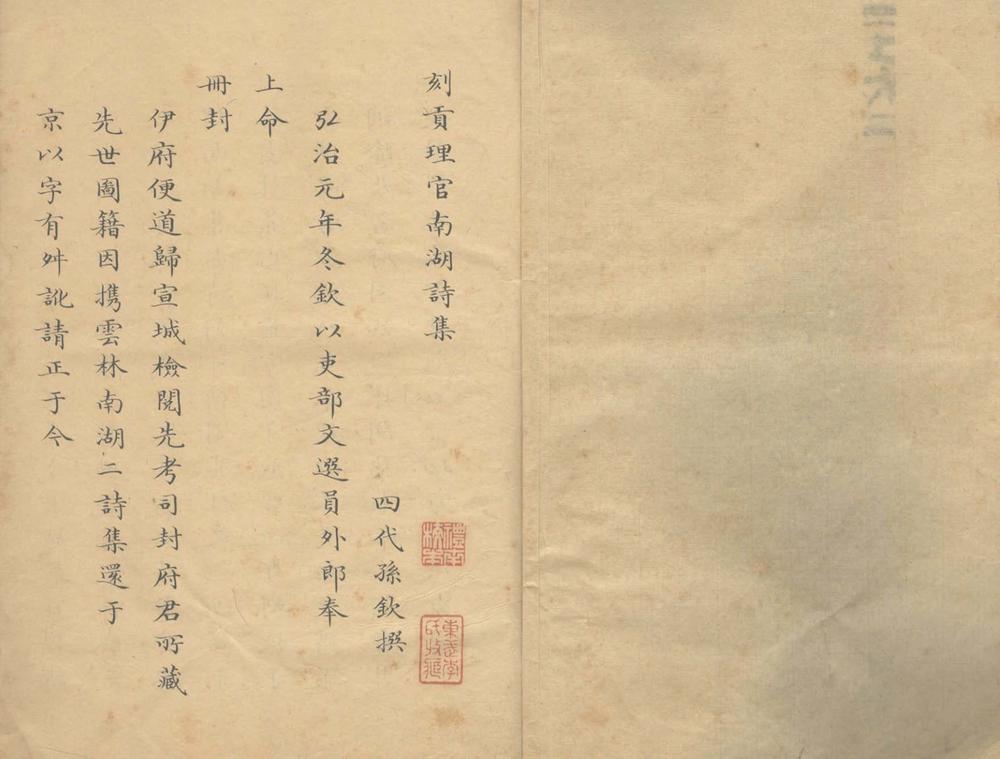 刻貢理官南湖詩集
四代孫欽撰
弘治元年冬欽以吏部文選員外郎奉
上命
冊封
伊府便道歸宣城檢閱先考司封府君所藏
先世圖籍因携雲林南湖二詩集還于
京以字有舛訛請正于今